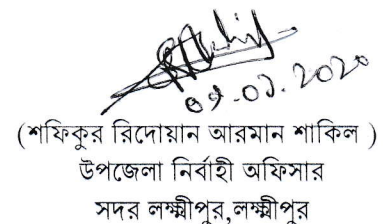 ০৭.০১.২০২০
(শফিকুর রিদোয়ান আরমান শাকিল )
উপজেলা নির্বাহী অফিসার
সদর লক্ষ্মীপুর,লক্ষ্মীপুর